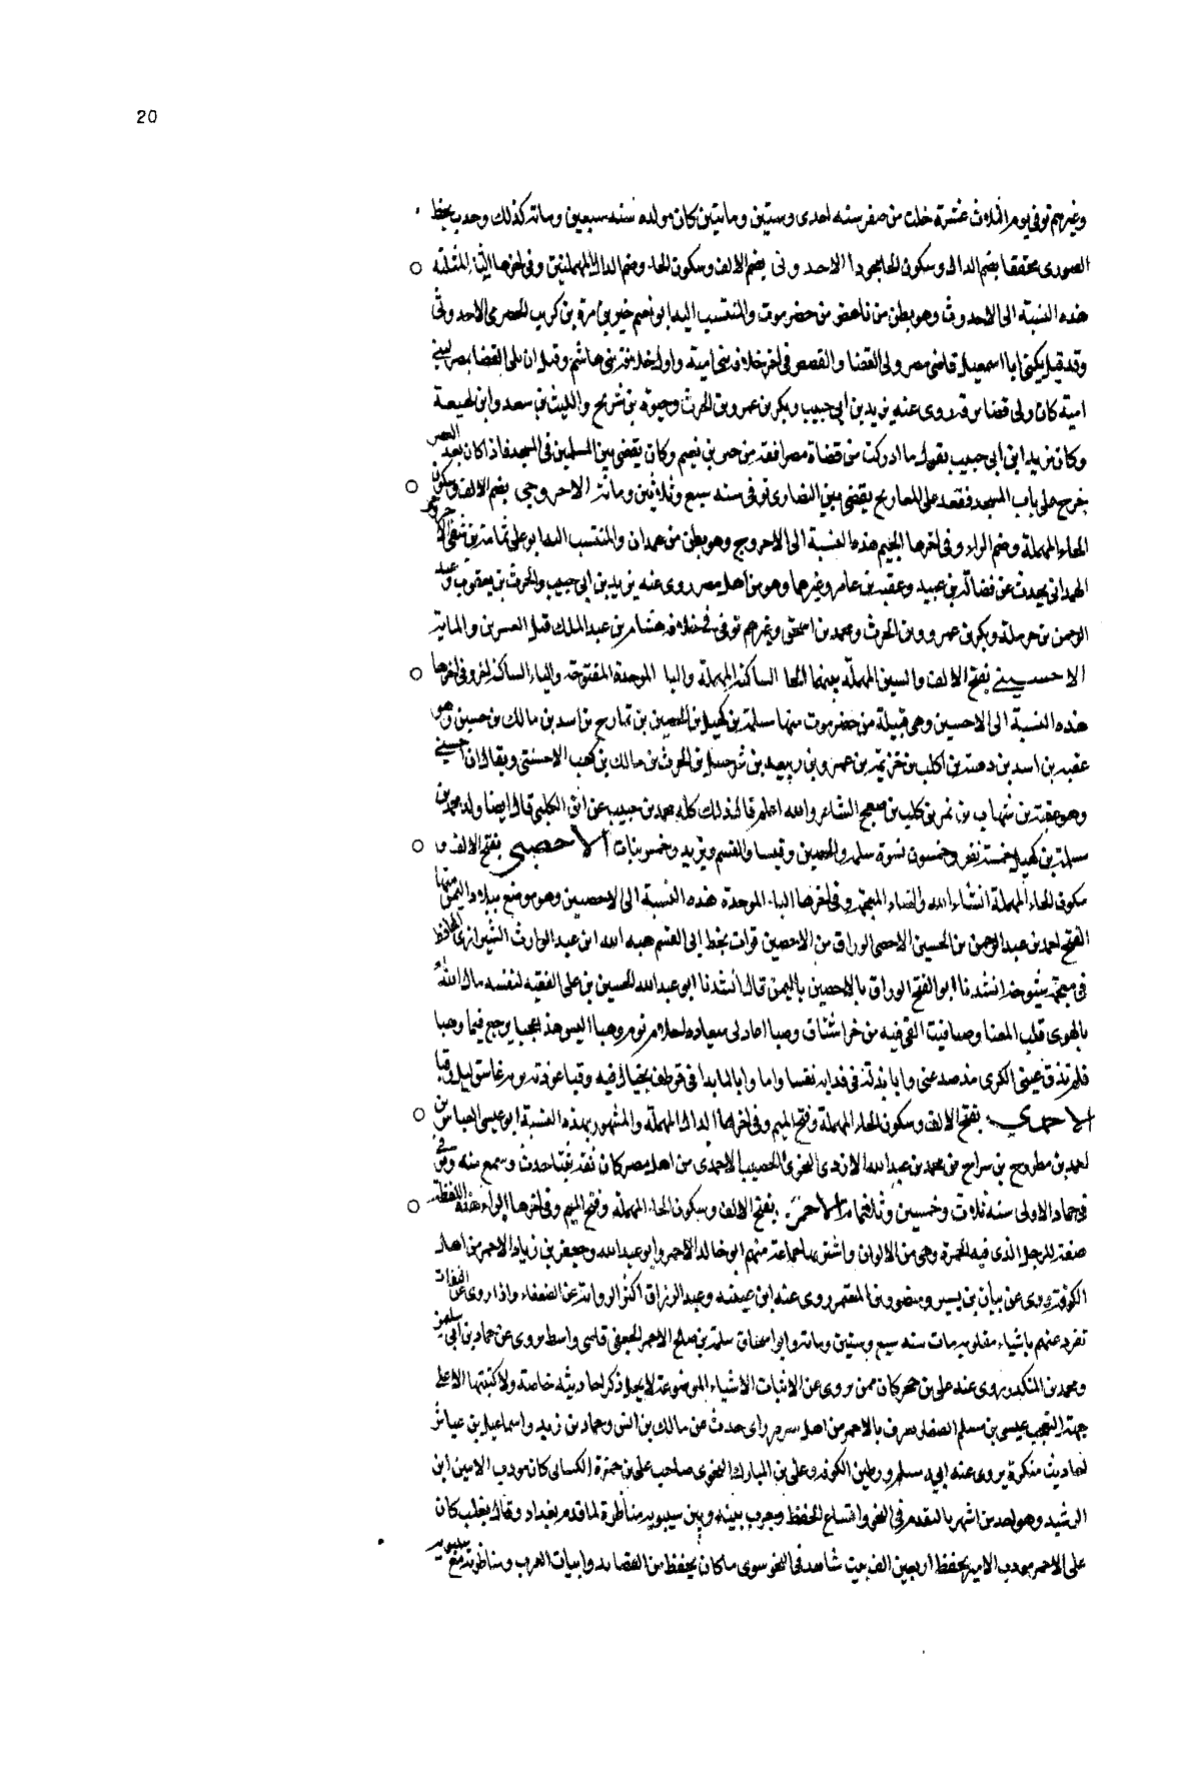 20
وغيرهم توفي يوم الثلاث عشرة خلت من صفر سنه احدى وستين وماتين كان مولده سنه سبعين وماته كذلك وجدت بخط
الصورى محققا بضم الدال وسكون الحا مجودا الاحدوثى بضم الالف وسكون الحا وضم الدال المهملتين وفى اخرها الثا المثلثه
هذه النسبة الى الاحدوث وهو بطن من ناهض من حضرموت والمنتسب اليه ابو نعيم خير بن مرة بن كريب الحضرمى الاحدوثى
وقد قيل يكنى ابا اسمعيل قاضى مصر ولى القضا والقصص فى اخر خلافة بنى امية واول خلافة بنى هاشم وقبل ان يلى القضا بمصر لبنى
امية كان ولى قضا برقه روى عنه يزيد بن ابى حبيب وبكر بن عمرو بن الحرث وحيوة بن شريح والليث بن سعد وابن لهيعة
وكان يزيد ابن ابى حبيب يقول ما ادركت من قضاة مصر افقه من خير بن نعيم وكان يقضى بين المسلمين فى المسجد فاذا كان بعد العصر
خرج على باب المسجد فقعد على المعارج يقضى بين النصارى توفى سنه سبع وثلاثين وماتة الاحروجى بضم الالف وسكون
الحاء المهملة وضم الراء وفى اخرها الجيم هذه النسبة الى الاحروج وهو بطن من همدان والمنتسب اليه ابو على ثمامة بن شفى الا حروجى
الهمدانى يحدث عن فضالة بن عبيد وعقبه بن عامر وغيرهما وهو من اهل مصر روى عنه يزيد بن ابى حبيب والحرث بن يعقوب وعبد
الرحمن بن حرملة وبكر بن عمرو وبن الحرث ومحمد بن اسحق وغيرهم توفى فى خلافة هشام بن عبد الملك قبل العشرين والماية
الاحسينى بفتح الالف والسين المهملة بينهما الحا الساكنة المهملة واليا الموحدة المفتوحة والياء الساكنة اخر وفى اخرها
هذه النسبة الى الاحسين وهى قبيلة من حضرموت منها سلمة بن كهيل بن الحصين بن تمارح بن اسد بن مالك بن حسين وهو
عقبه بن اسد بن اكلب بن عمرو بن ربيعه بن شرحبيل بن الحرث بن مالك بن كعب الاحسنى ويقال ان احسينى
وهو عقبة بن شهاب بن نمر بن كليب بن الشاعر والله اعلم قال ذلك كله محمد بن حبيب عن ابن الكلبى قال ايضا ولد محمد بن
سلمة بن كهيل خمسة نفر وخمسون نسوة سلمه والحصين وقيسا والقسم ويزيد وخمس بنات الاحصبى بفتح الالف و
سكون الحاء المهملة انشاء الله والضاد المعجمه وفى اخرها الباء الموحدة هذه النسبة الى الاحصبين وهو موضع ببلاد اليمن منها
الفتح احمد بن عبد الرحمن بن الحسين الاحصبى الوراق من الاحصبين قرات بخط ابى القسم هبه الله ابن عبد الوارث الشيرازى الحافظ
فى معجمة شيوخه انشدنا ابو الفتح الوراق بالاحصبين باليمن قال انشدنا ابى عبد الله الحسين بن على الفقيه لنفسه
بالهوى قلب المعنا وصبا
فلم تذق عينى الكرى مذ صد عنى
الاحمدي بفتح الالف وسكون الحاء المهملة وفتح الميم وفى اخرها الدال المهملة والمشهور بهذه النسبة ابو عيسى العباس بن
احمد بن مطروح بن سراج بن محمد بن عبد الله الازدى البحرى الاحمدى من اهل مصر كان ثقه ثبتا حدث وسمع منه وتوفى
فى جماد الاولى سنه ثلاث وخمسين وثلثماه الاحمر بفتح الالف وسكون الحا المهملة وفتح الميم وفى اخرها الراء هذه اللفظه
صفة للرجل الذى فيه الحمرة وهى من الالوان واشتهر بها جماعة منهم ابو خالد الاحمر وابو عبد الله وجعفر بن زياد الاحمر من اهل
الكوفة يروى عن بيان بن بسير ومنصور بن المعتمر روى عنه ابن عيينه وعبد الرزاق اكثر الرواية عن الضعفاء واذا روى عن الثقات
تفرد عنهم باشياء مقلوبه مات سنه سبع وستين وماتة وابو اسحاق سلمة بن صالح الاحمر الجعفى قاضى واسط يروى عن حماد بن ابى سليمن
ومحمد بن المنكدر روى عنه على بن حجر كان ممن يروى عن الاثبات الاشياء الموضوعة لا يحل ذكر احاديثه خاصة ولا كتبتها الا على
جهة التعجب عيسى بن مسلم الصفار يعرف بالاحمر من اهل سر من راى حدث عن مالك بن انس وحماد بن زيد واسماعيل بن عياش
احاديث منكرة يروى عنه ابى مسلم ومطين الكوفى وعلى بن المبارك النحوى صاحب على بن حمزة الكسائى كان مودب الامين ابن
الرشيد وهو احد من اشهر بالتقدم فى النحو واتساع الحفظ وجرت بينه وبين سيبويه مناظرة لما قدم بغداد وقال ثعلب كان
على الاحمر مودب الامين يحفظ اربعين الف بيت شاهد فى النحو سوى ما كان يحفظ من القصايد وابيات العرب ومناظرته مع سيبويه